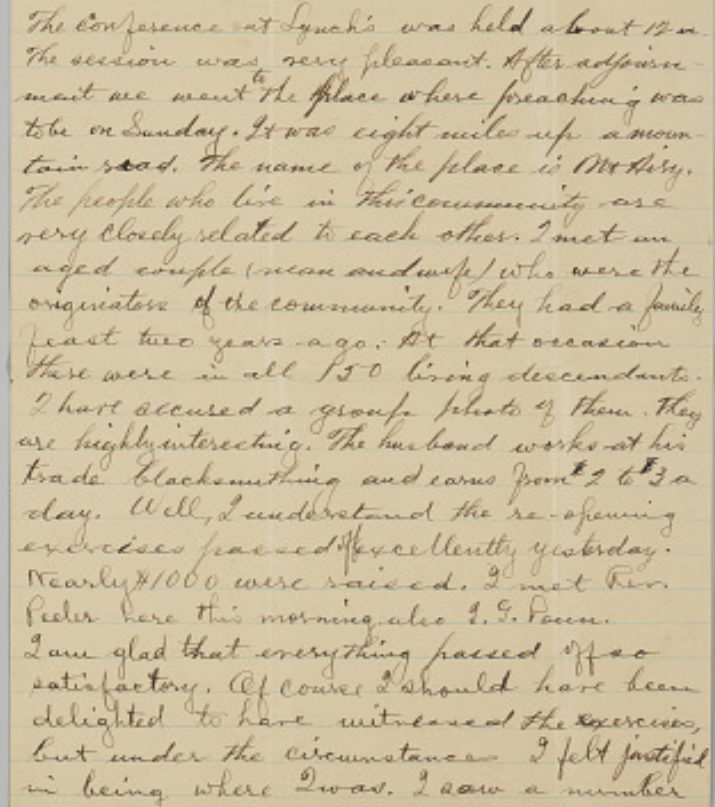 The conference at Lynch's was held about 12 m.
The session was very pleasant. After adjourn-
ment we went to the place where preaching was
to be on Sunday. It was eight miles up a moun-
tain road. The name of the place is Mt Airy.
The people who live in this community are
very closely related to each other. I met an
aged couple (man and wife) who were the
originators of the community. They had a family
feast two years ago. At that occasion
there were in all 150 living descendants.
I have secured a group photo of them. They
are highly interesting. The husband works at his
trade blacksmithing and earns from $2 to $3 a
day. Well, I understand the re-opening
exercises passed off excellently yesterday.
Nearly $1000 were raised. I met Rev.
Peeler here this morning also I. G. Penn.
I am glad that everything passed off so
satisfactory. Of course I should have been
delighted to have witnessed the exercises,
but under the circumstances I felt justified
in being where I was. I saw a number